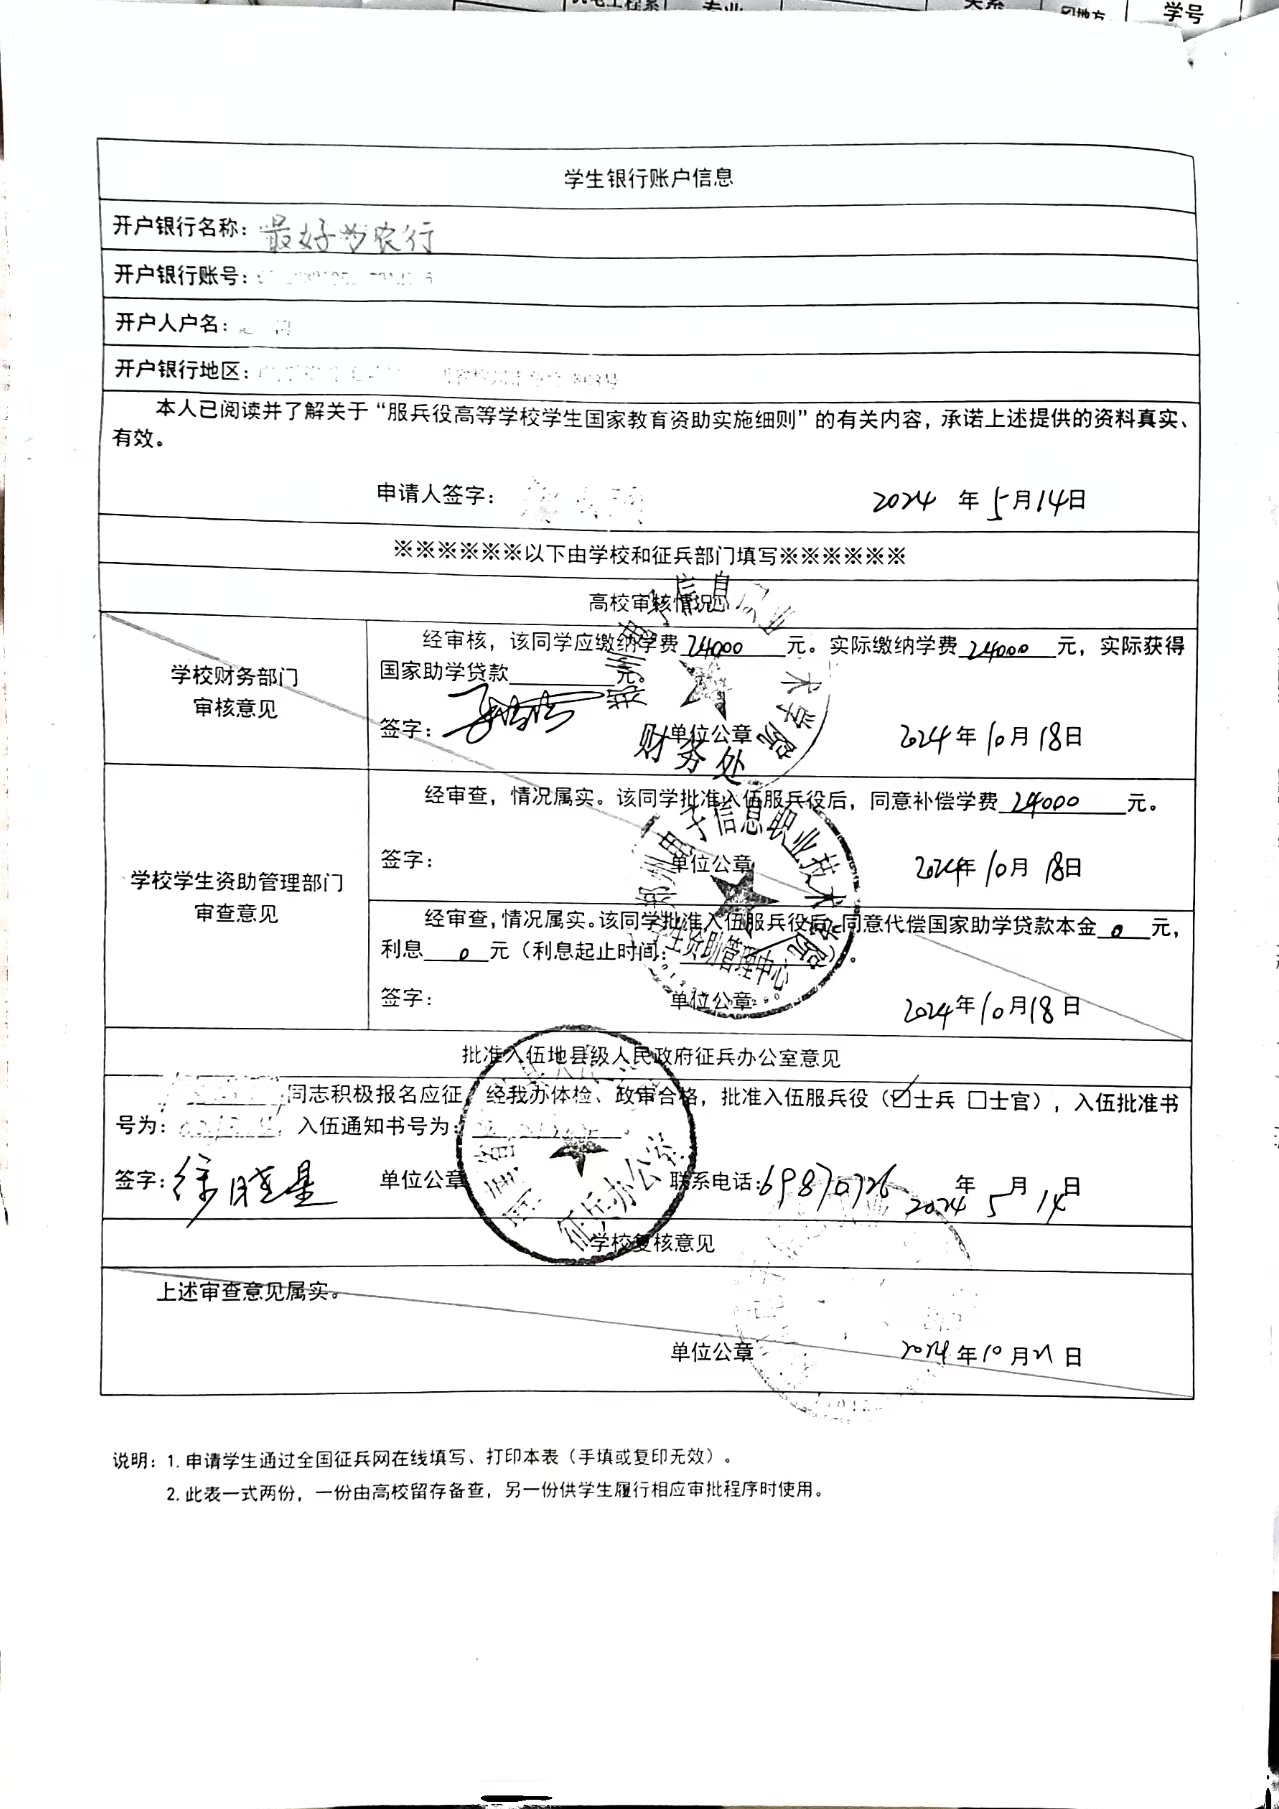 学号
学生银行账户信息
开户银行名称：最好为农行
开户银行账号：
开户人户名：
开户银行地区：
本人已阅读并了解关于“服兵役高等学校学生国家教育资助实施细则”的有关内容，承诺上述提供的资料真实、
有效。
申请人签字： 2024 年 5月14日
※※※※※※以下由学校和征兵部门填写※※※※※※
高校审核情况
学校财务部门
审核意见
经审核，该同学应缴纳学费 24000 元。实际缴纳学费 24000 元，实际获得
国家助学贷款 元。
签字： 单位公章 2024年10月18日
郑州电子信息职业技术学院
财务处
学校学生资助管理部门
审查意见
经审查，情况属实。该同学批准入伍服兵役后，同意补偿学费 24000 元。
签字： 单位公章 2024年10月18日
郑州电子信息职业技术学院
学生资助管理中心
经审查，情况属实。该同学批准入伍服兵役后，同意代偿国家助学贷款本金 0 元，
利息 0 元（利息起止时间： ）。
签字： 单位公章 2024年10月18日
批准入伍地县级人民政府征兵办公室意见
同志积极报名应征，经我办体检、政审合格，批准入伍服兵役（☑士兵 □士官），入伍批准书
号为： 入伍通知书号为：
签字：徐晓星 单位公章 联系电话：69870726 2024年5月14日
征兵办公室
学校复核意见
上述审查意见属实。
单位公章 2024年10月21日
说明：1. 申请学生通过全国征兵网在线填写、打印本表（手填或复印无效）。
2. 此表一式两份，一份由高校留存备查，另一份供学生履行相应审批程序时使用。